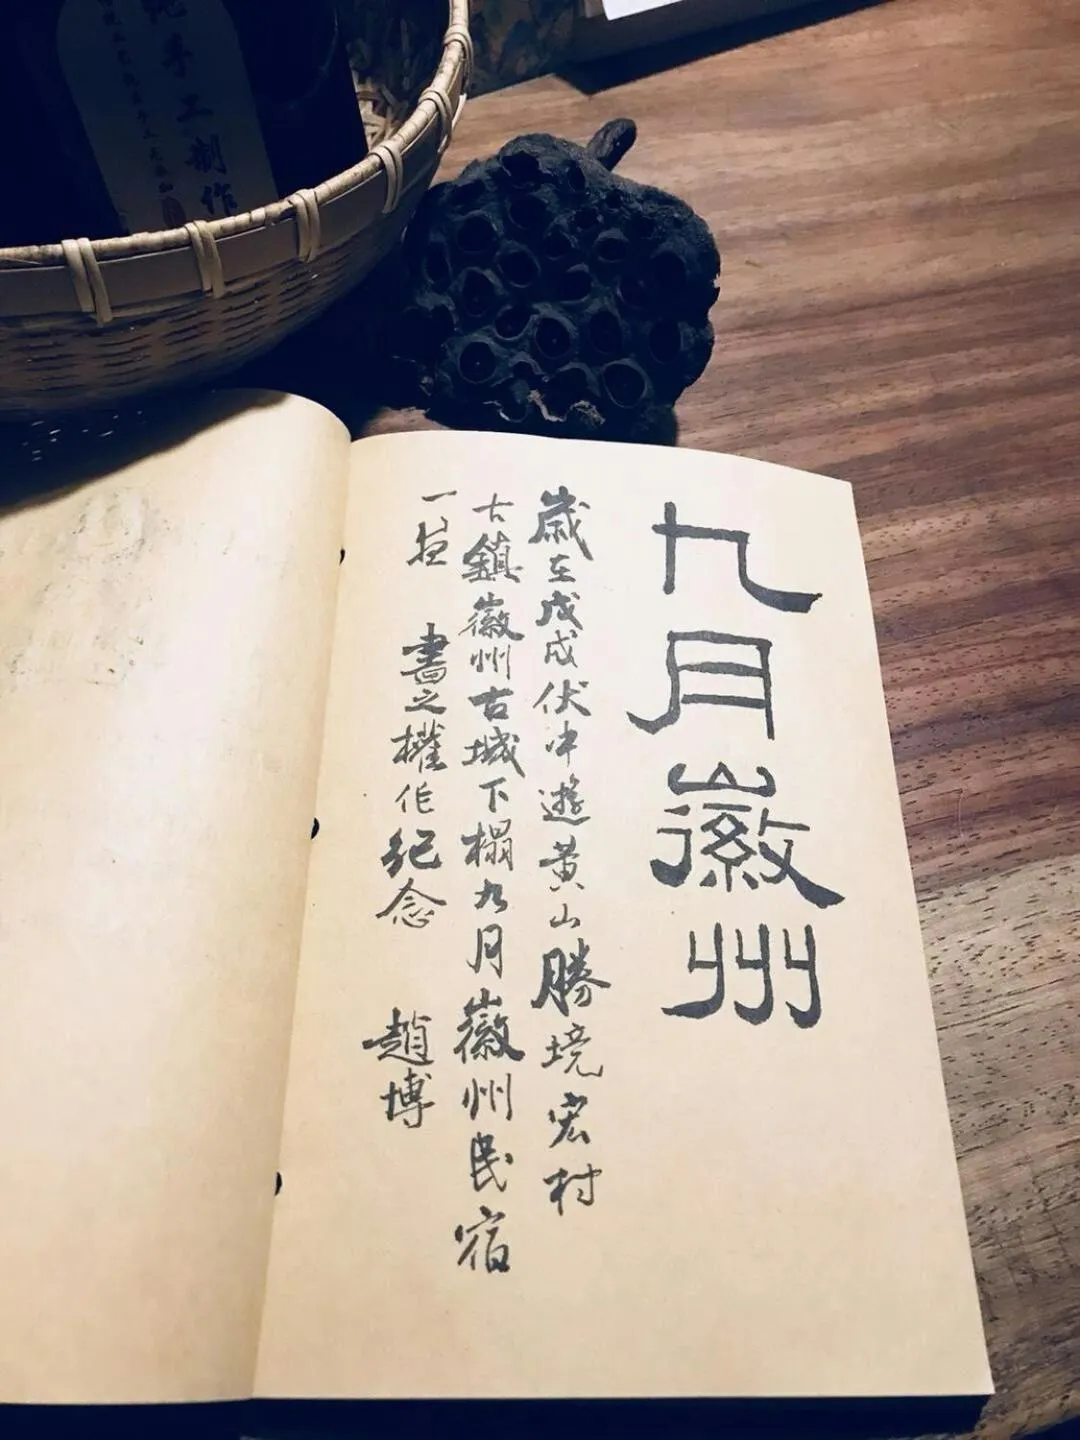 九月徽州
歲在戊戌伏冲遊黃山勝境宏村
古鎮徽州古城下榻九月徽州民宿
一 書之權作紀念 趙博
手工制作